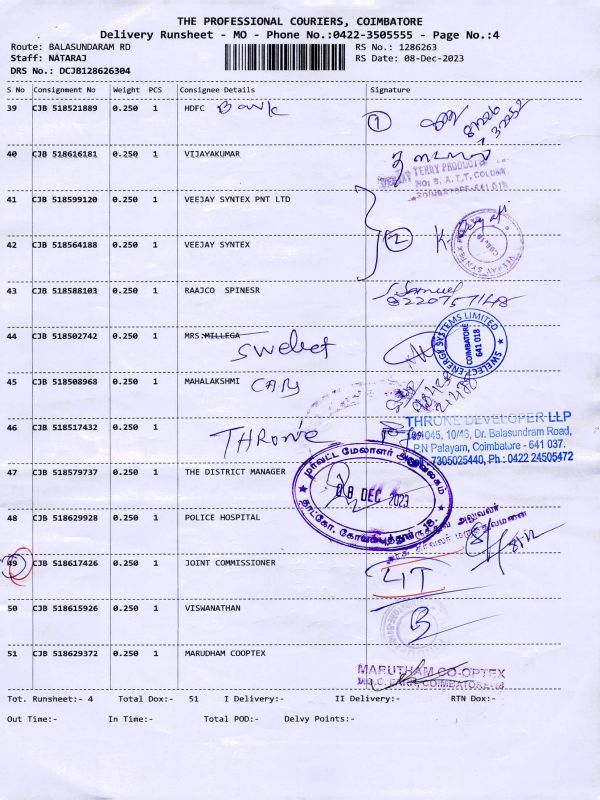 THE PROFESSIONAL COURIERS, COIMBATORE
Delivery Runsheet - MO - Phone No.:0422-3505555 - Page No.:4
Route: BALASUNDARAM RD
RS No.: 1286263
Staff: NATARAJ
RS Date: 08-Dec-2023
DRS No.: DCJB128626304
S No Consignment No Weight PCS Consignee Details Signature
39 CJB 518521889 0.250 1 HDFC Bank 1
40 CJB 518616181 0.250 1 VIJAYAKUMAR
TERRY PRODUCTS
NO: 8, A.T.T. COLONY
COIMBATORE-641 018
41 CJB 518599120 0.250 1 VEEJAY SYNTEX PNT LTD
2
42 CJB 518564188 0.250 1 VEEJAY SYNTEX
43 CJB 518588103 0.250 1 RAAJCO SPINESR
S. Samuel
44 CJB 518502742 0.250 1 MRS.MILLEGA
Swelect
SWELECT ENERGY SYSTEMS LIMITED
COIMBATORE
641 018
45 CJB 518508968 0.250 1 MAHALAKSHMI
46 CJB 518517432 0.250 1
THRONE
THRONE DEVELOPER LLP
109/045, 10/46, Dr. Balasundram Road,
P.N Palayam, Coimbatore - 641 037.
7305025440, Ph : 0422 24505472
47 CJB 518579737 0.250 1 THE DISTRICT MANAGER
மாவட்ட மேலாளர் அலுவலகம்
08 DEC 2023
தாட்கோ, கோயம்புத்தூர்-18.
48 CJB 518629928 0.250 1 POLICE HOSPITAL
49 CJB 518617426 0.250 1 JOINT COMMISSIONER
50 CJB 518615926 0.250 1 VISWANATHAN
51 CJB 518629372 0.250 1 MARUDHAM COOPTEX
MARUTHAM CO-OPTEX
Tot. Runsheet:- 4 Total Dox:- 51 I Delivery:- II Delivery:- RTN Dox:-
Out Time:- In Time:- Total POD:- Delvy Points:-